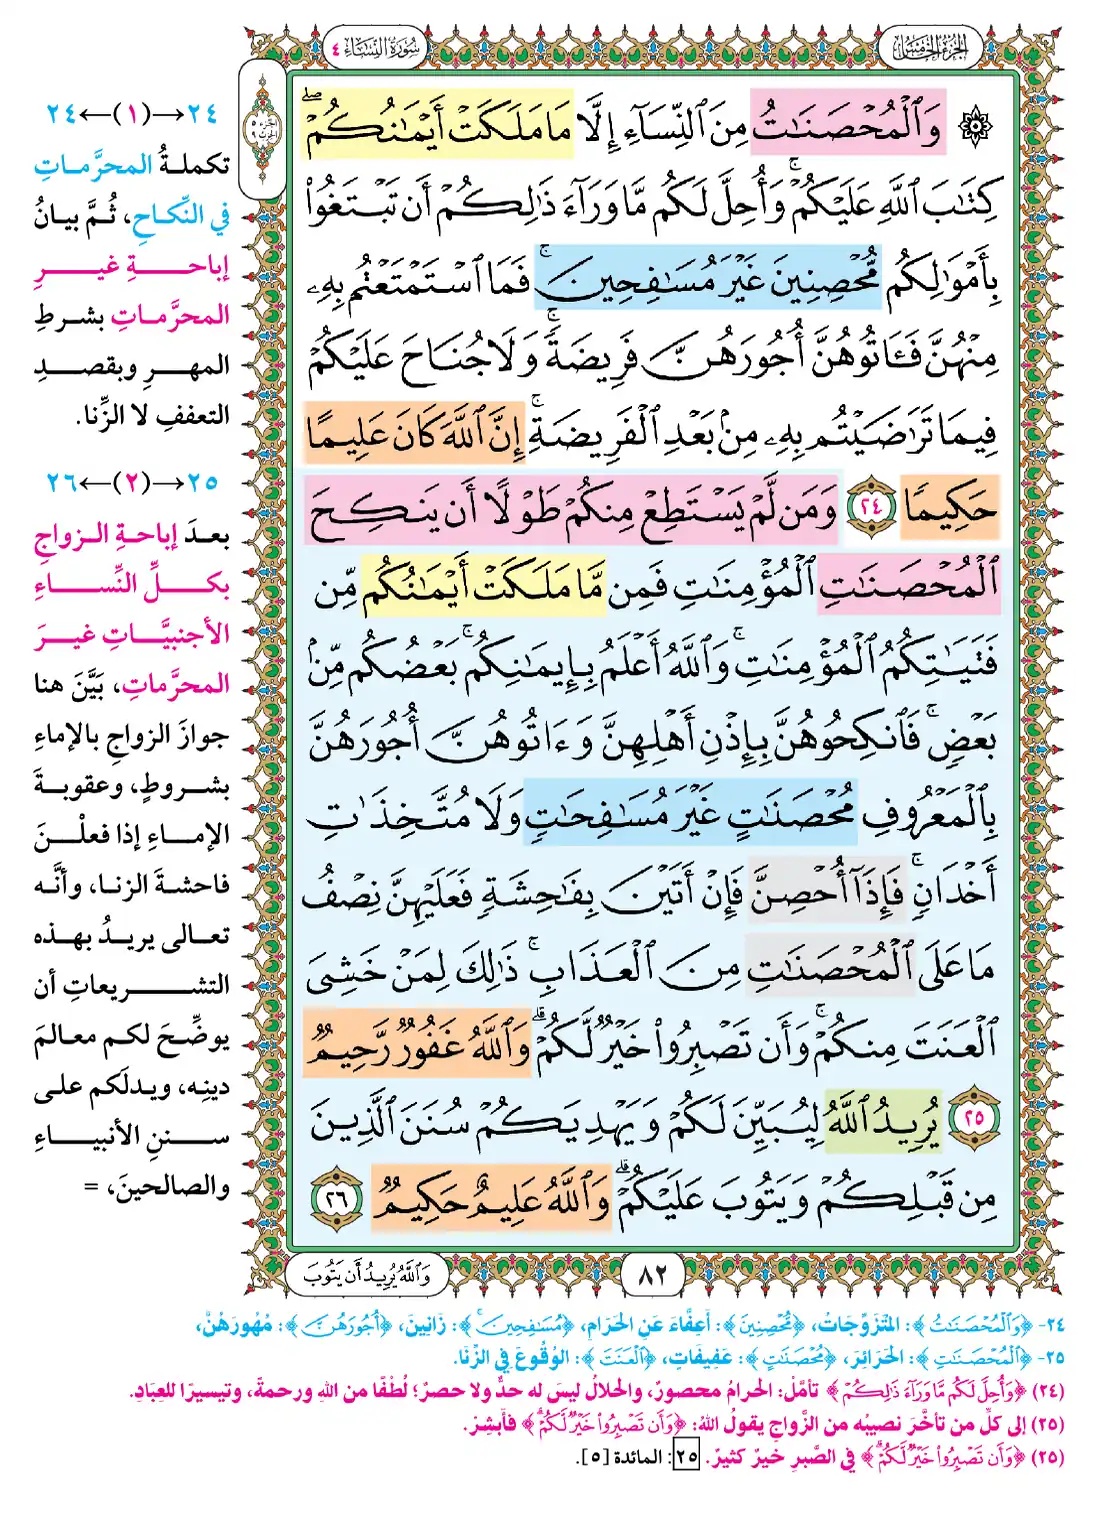 الجزء الخامس
سورة النساء ٤
الجزء ٥
الحزب ٩
۞ وَٱلْمُحْصَنَٰتُ مِنَ ٱلنِّسَآءِ إِلَّا مَا مَلَكَتْ أَيْمَٰنُكُمْ ۖ
كِتَٰبَ ٱللَّهِ عَلَيْكُمْ ۚ وَأُحِلَّ لَكُم مَّا وَرَآءَ ذَٰلِكُمْ أَن تَبْتَغُوا۟
بِأَمْوَٰلِكُم مُّحْصِنِينَ غَيْرَ مُسَٰفِحِينَ ۚ فَمَا ٱسْتَمْتَعْتُم بِهِۦ
مِنْهُنَّ فَـَٔاتُوهُنَّ أُجُورَهُنَّ فَرِيضَةً ۚ وَلَا جُنَاحَ عَلَيْكُمْ
فِيمَا تَرَٰضَيْتُم بِهِۦ مِنۢ بَعْدِ ٱلْفَرِيضَةِ ۚ إِنَّ ٱللَّهَ كَانَ عَلِيمًا
حَكِيمًا ٢٤ وَمَن لَّمْ يَسْتَطِعْ مِنكُمْ طَوْلًا أَن يَنكِحَ
ٱلْمُحْصَنَٰتِ ٱلْمُؤْمِنَٰتِ فَمِن مَّا مَلَكَتْ أَيْمَٰنُكُم مِّن
فَتَيَٰتِكُمُ ٱلْمُؤْمِنَٰتِ ۚ وَٱللَّهُ أَعْلَمُ بِإِيمَٰنِكُم ۚ بَعْضُكُم مِّنۢ
بَعْضٍ ۚ فَٱنكِحُوهُنَّ بِإِذْنِ أَهْلِهِنَّ وَءَاتُوهُنَّ أُجُورَهُنَّ
بِٱلْمَعْرُوفِ مُحْصَنَٰتٍ غَيْرَ مُسَٰفِحَٰتٍ وَلَا مُتَّخِذَٰتِ
أَخْدَانٍ ۚ فَإِذَآ أُحْصِنَّ فَإِنْ أَتَيْنَ بِفَٰحِشَةٍ فَعَلَيْهِنَّ نِصْفُ
مَا عَلَى ٱلْمُحْصَنَٰتِ مِنَ ٱلْعَذَابِ ۚ ذَٰلِكَ لِمَنْ خَشِىَ
ٱلْعَنَتَ مِنكُمْ ۚ وَأَن تَصْبِرُوا۟ خَيْرٌ لَّكُمْ ۗ وَٱللَّهُ غَفُورٌ رَّحِيمٌ
٢٥ يُرِيدُ ٱللَّهُ لِيُبَيِّنَ لَكُمْ وَيَهْدِيَكُمْ سُنَنَ ٱلَّذِينَ
مِن قَبْلِكُمْ وَيَتُوبَ عَلَيْكُمْ ۗ وَٱللَّهُ عَلِيمٌ حَكِيمٌ ٢٦
٨٢
وَٱللَّهُ يُرِيدُ أَن يَتُوبَ
٢٤→(١)←٢٤
تكملةُ المحرَّماتِ
في النِّكاحِ، ثُمَّ بيانُ
إباحةِ غيرِ
المحرَّماتِ بشرطِ
المهرِ وبقصدِ
التعففِ لا الزِّنا.
٢٥→(٢)←٢٦
بعدَ إباحةِ الزواجِ
بكلِّ النِّساءِ
الأجنبيَّاتِ غيرَ
المحرَّماتِ، بَيَّنَ هنا
جوازَ الزواجِ بالإماءِ
بشروطٍ، وعقوبةَ
الإماءِ إذا فعلْنَ
فاحشةَ الزنا، وأنَّه
تعالى يريدُ بهذه
التشريعاتِ أن
يوضِّحَ لكم معالمَ
دينِه، ويدلَكم على
سننِ الأنبياءِ
والصالحينَ، =
٢٤- ﴿وَٱلْمُحْصَنَٰتُ﴾: المُتَزَوِّجَاتُ، ﴿مُّحْصِنِينَ﴾: أَعِفَّاءَ عَنِ الحَرَامِ، ﴿مُسَٰفِحِينَ ۚ﴾: زَانِينَ، ﴿أُجُورَهُنَّ﴾: مُهُورَهُنَّ،
٢٥- ﴿ٱلْمُحْصَنَٰتِ﴾: الحَرَائِرَ، ﴿مُحْصَنَٰتٍ﴾: عَفِيفَاتٍ، ﴿ٱلْعَنَتَ﴾: الوُقُوعَ فِي الزِّنَا.
(٢٤) ﴿وَأُحِلَّ لَكُم مَّا وَرَآءَ ذَٰلِكُمْ﴾ تأمَّلْ: الحرامُ محصورٌ، والحلالُ ليسَ له حدٌّ ولا حصرٌ؛ لُطْفًا من اللهِ ورحمةً، وتيسيرًا للعِبَادِ.
(٢٥) إلى كلِّ من تأخَّرَ نصيبُه من الزَّواجِ يقولُ اللهُ: ﴿وَأَن تَصْبِرُوا۟ خَيْرٌ لَّكُمْ ۗ﴾ فأبشِرْ.
(٢٥) ﴿وَأَن تَصْبِرُوا۟ خَيْرٌ لَّكُمْ ۗ﴾ في الصَّبرِ خيرٌ كثيرٌ. ٢٥: المائدة [٥].